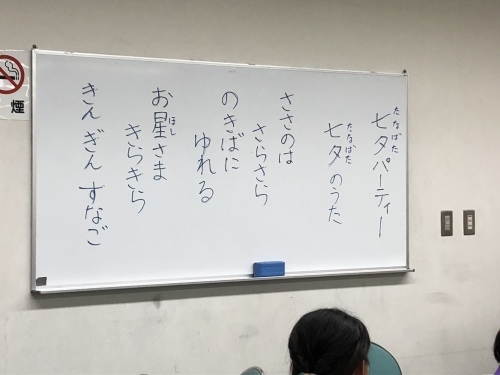 七夕パーティー
たなばた
七夕のうた
たなばた
ささのは
さらさら
のきばに
ゆれる
お星さま
ほし
きらきら
きん ぎん すなご
煙